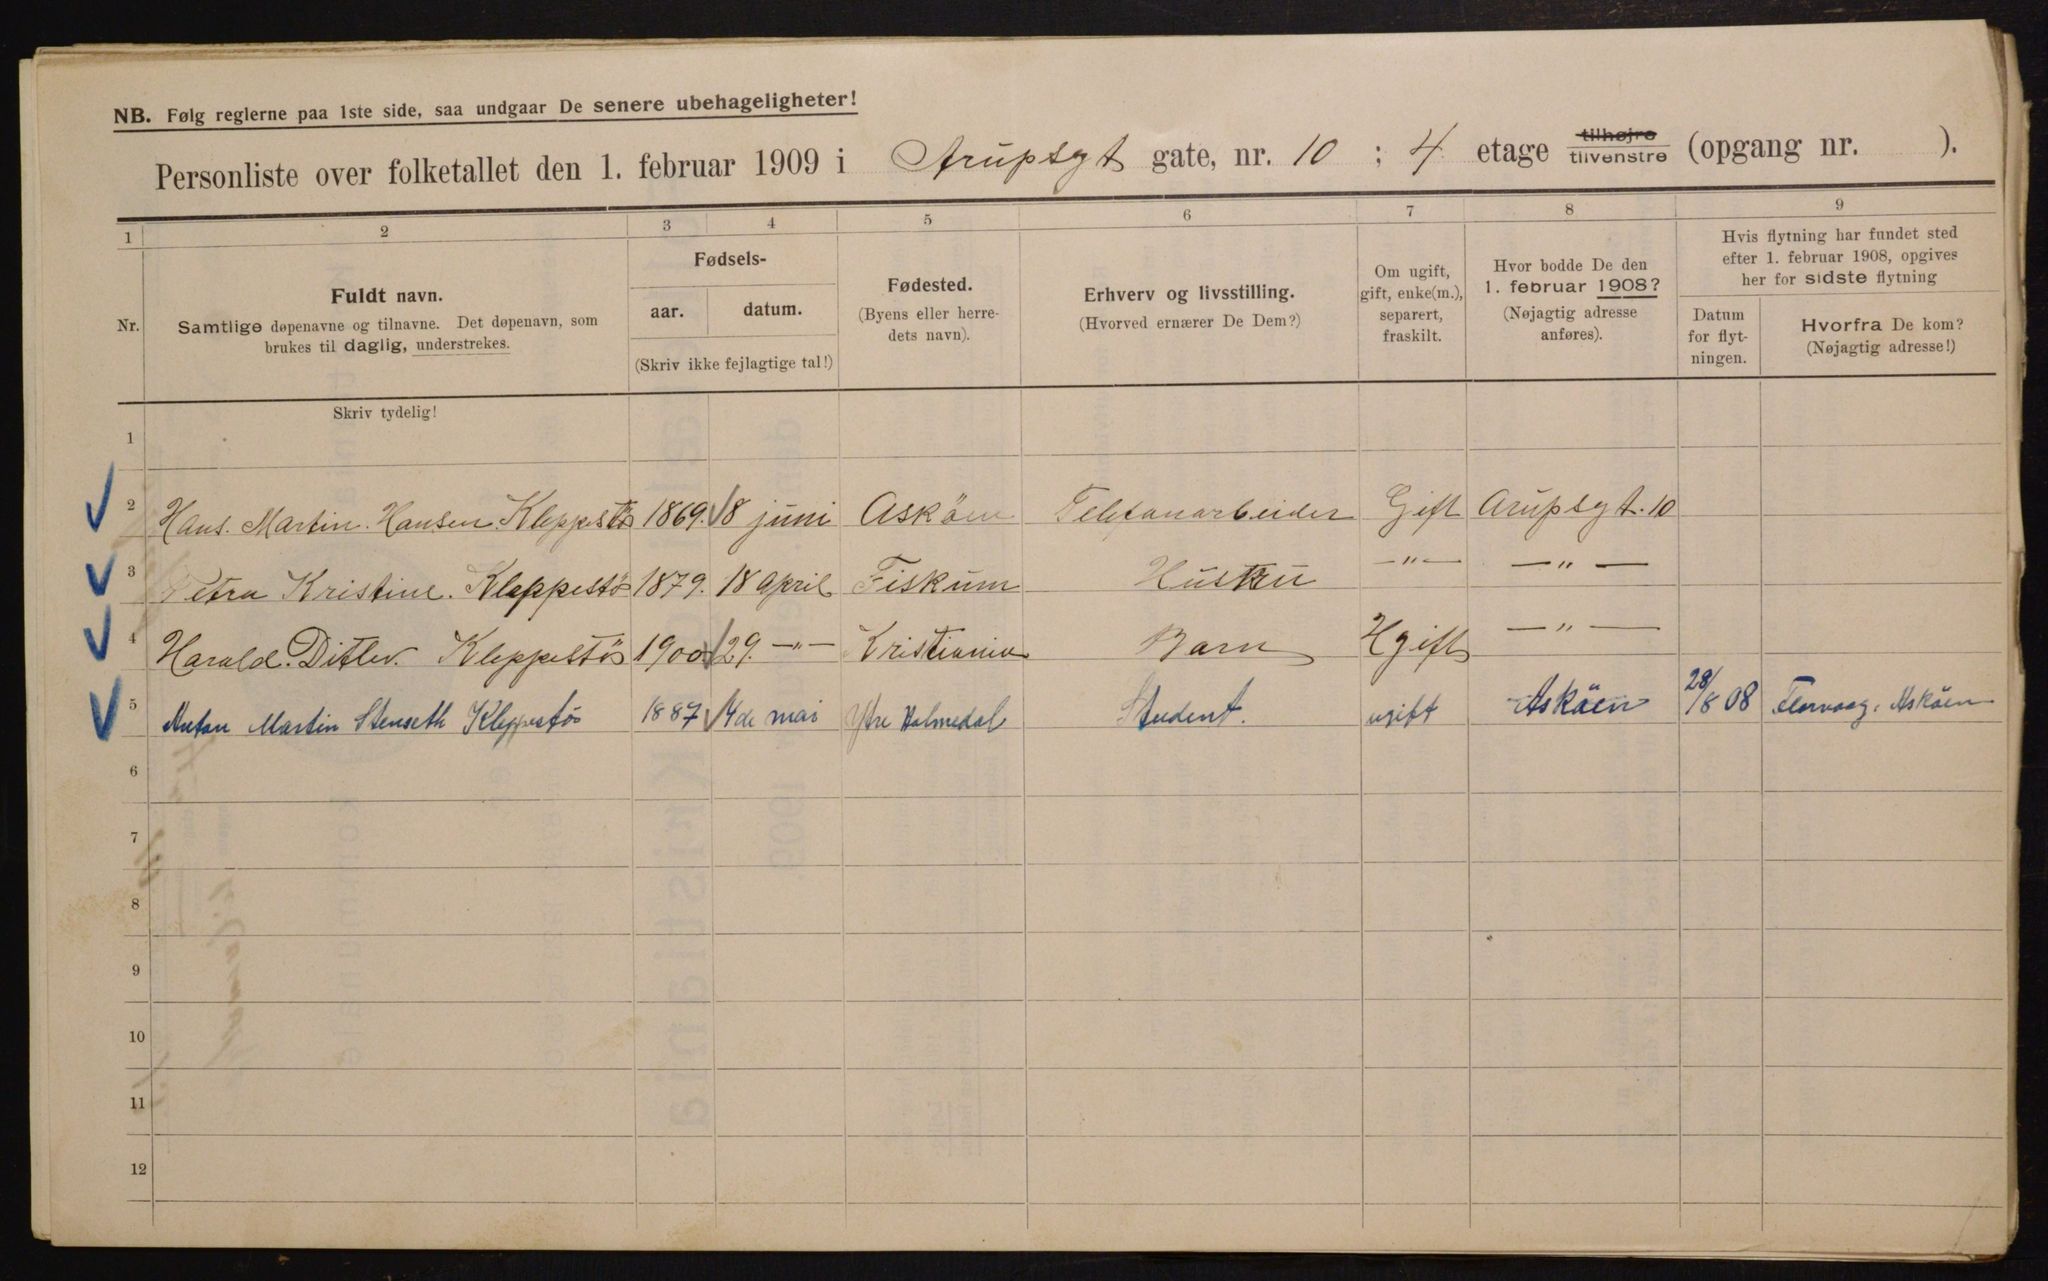 NB. Følg reglerne paa 1ste side, saa undgaar De senere ubehageligheter!
Personliste over folketallet den 1. februar 1909 i Arupsgt gate, nr. 10 ; 4 etage tilhøjre tilvenstre (opgang nr. ).
1 2 3 4 5 6 7 8 9
Nr.
Fuldt navn.
Samtlige døpenavne og tilnavne. Det døpenavn, som
brukes til daglig, understrekes.
Fødsels-
aar. datum.
(Skriv ikke fejlagtige tal!)
Fødested.
(Byens eller herre-
dets navn).
Erhverv og livsstilling.
(Hvorved ernærer De Dem?)
Om ugift,
gift, enke(m.),
separert,
fraskilt.
Hvor bodde De den
1. februar 1908?
(Nøjagtig adresse
anføres).
Hvis flytning har fundet sted
efter 1. februar 1908, opgives
her for sidste flytning
Datum
for flyt-
ningen.
Hvorfra De kom?
(Nøjagtig adresse!)
Skriv tydelig!
1
2 Hans. Martin. Hansen. Kleppestö 1869. 18 juni Asköen Telefonarbeider Gift Arupsgt. 10
3 Petra Kristine. Kleppestö 1879. 18 april Fiskum Hustru —"— —"—
4 Harald. Ditlev. Kleppestö 1900. 29. —"— Kristiania Barn Ugift —"—
5 Anton Martin Stenseth Kleppestö 1887 4de mai Ytre Holmedal Student. ugift Asköen 28/8 08 Florvaag, Asköen
6
7
8
9
10
11
12